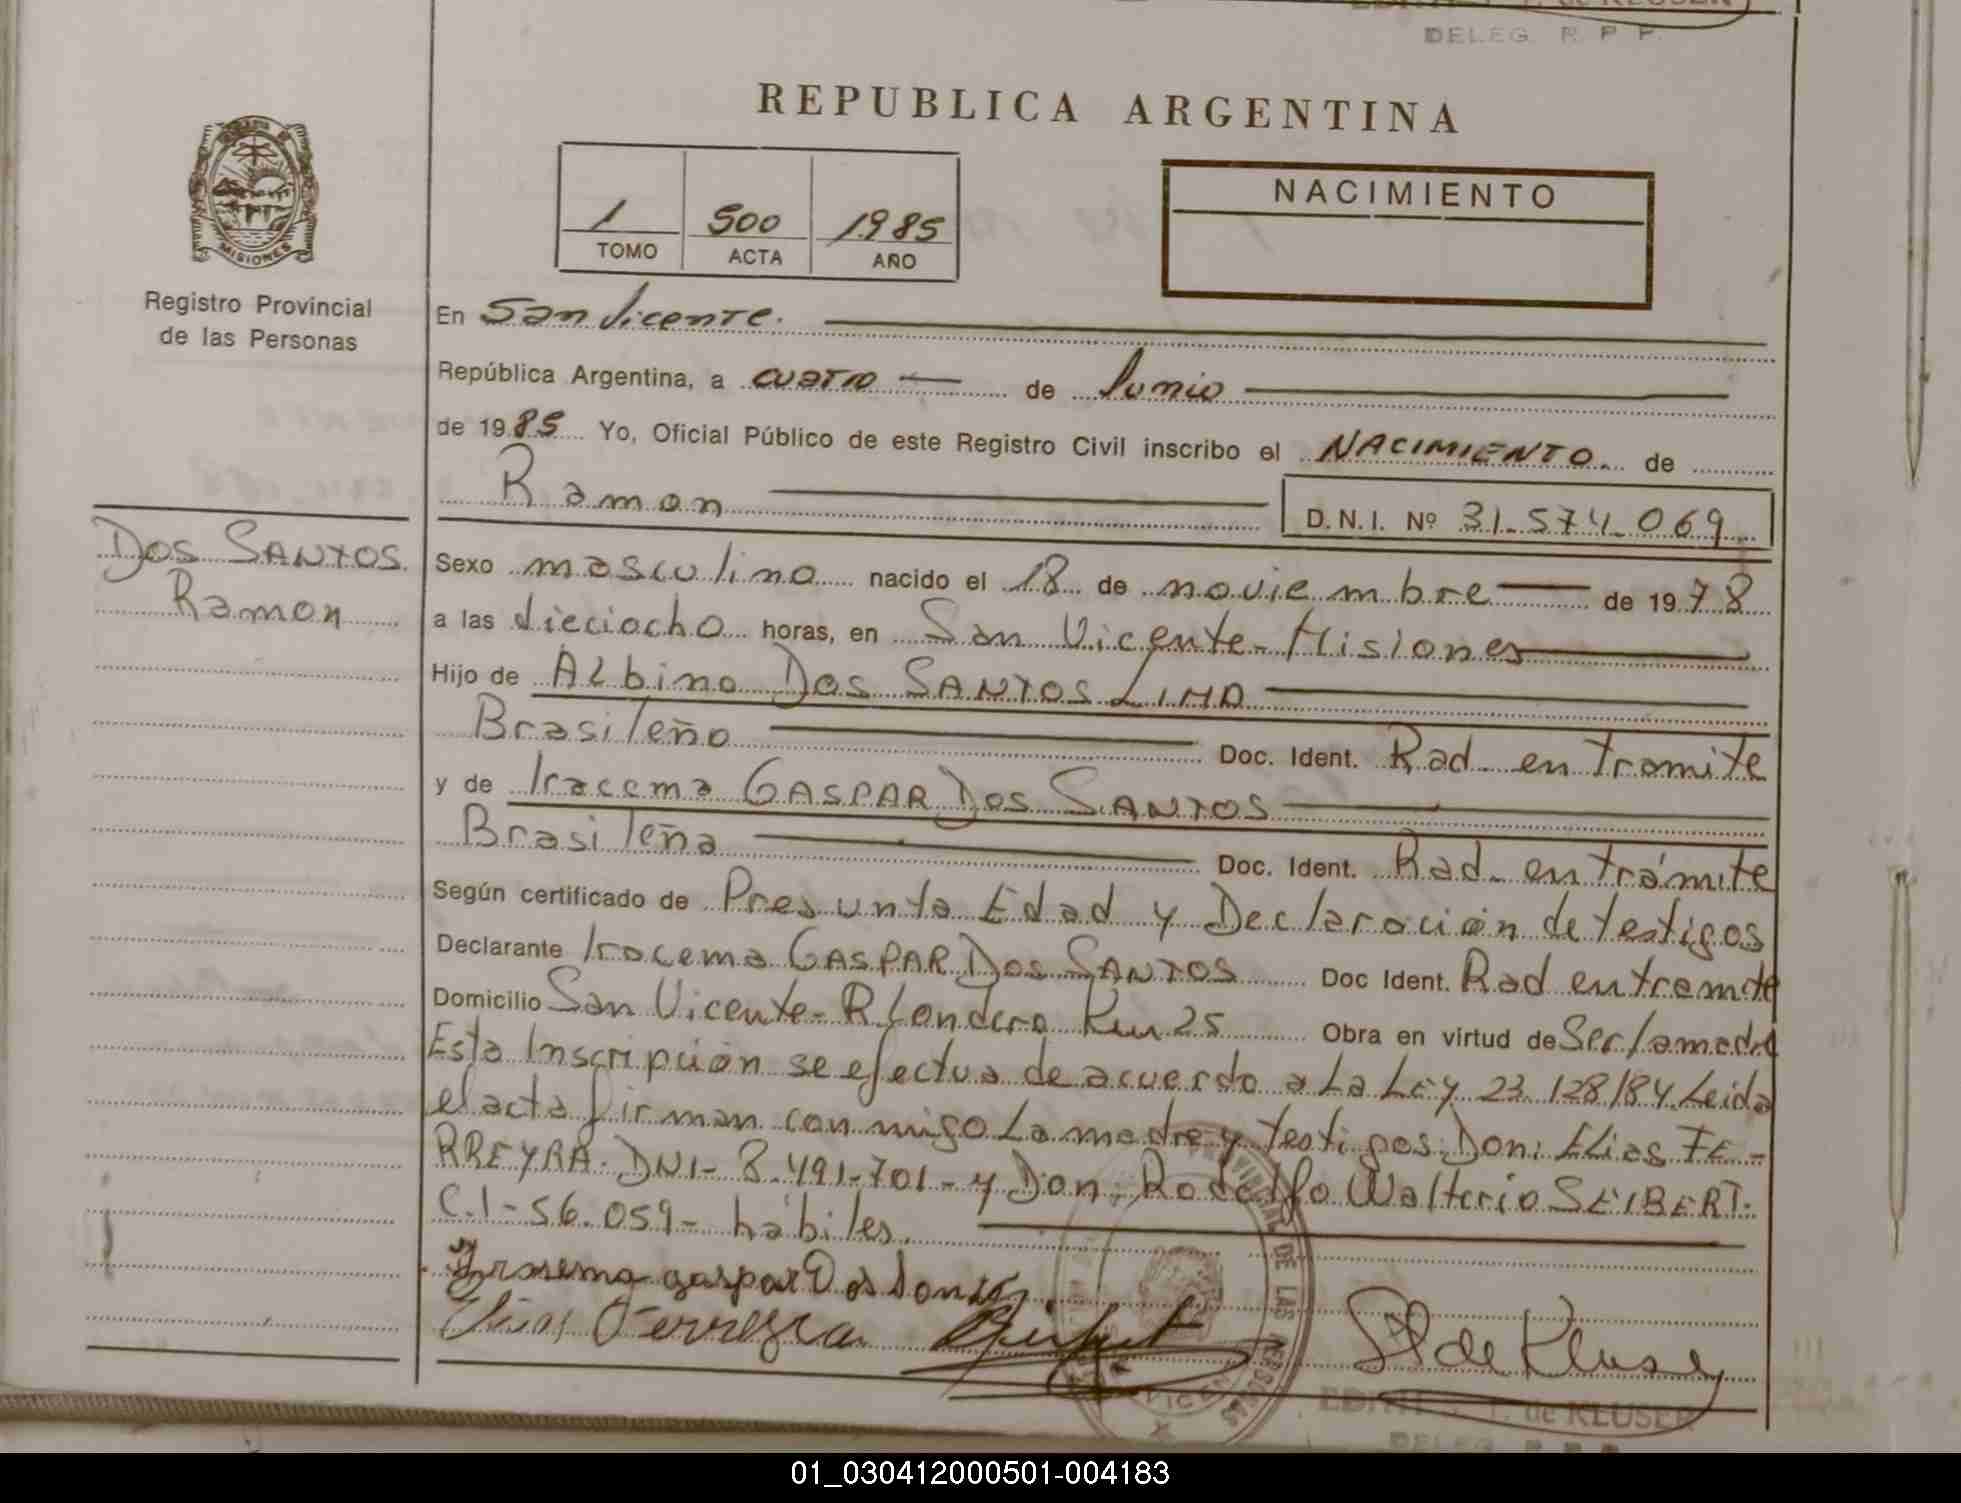 DELEG. R. P. P.
REPUBLICA ARGENTINA
MISIONES
Registro Provincial
de las Personas
1 500 1985
TOMO ACTA AÑO
NACIMIENTO
En San Vicente.
República Argentina, a cuatro de Junio
de 1985 Yo, Oficial Público de este Registro Civil inscribo el NACIMIENTO de
Ramon D.N.I. Nº 31.574.069
DOS SANTOS
Ramon
Sexo masculino nacido el 18 de noviembre de 1978
a las dieciocho horas, en San Vicente - Misiones
Hijo de Albino DOS SANTOS LIMA
Brasileño Doc. Ident. Rad. en Tramite
y de Iracema GASPAR DOS SANTOS
Brasileña Doc. Ident. Rad. en trámite
Según certificado de Presunta Edad y Declaración de testigos
Declarante Iracema GASPAR DOS SANTOS Doc Ident. Rad en tramite
Domicilio San Vicente - R. Londero Km 25 Obra en virtud de Ser la madre
Esta Inscripción se efectua de acuerdo a La Ley 23.128/84. Leida
el acta firman con migo La madre y testigos: Don: Elias FE-
RREYRA. DNI- 8.491.701- y Don: Rodolfo Walterio SEIBERT.
C.I- 56.059- hábiles.
Irasema gaspar Dos Santos
Elias Ferreyra
de Kluser
PROVINCIAL DE LAS PERSONAS
de KLUSER
DELEG. R. P. P.
01_030412000501-004183